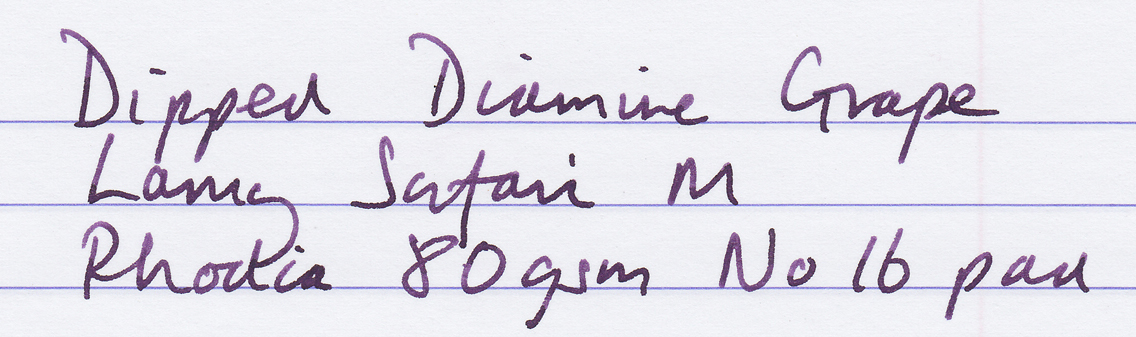 Dipped Diamine Grape
Lamy Safari M
Rhodia 80gsm No 16 pad